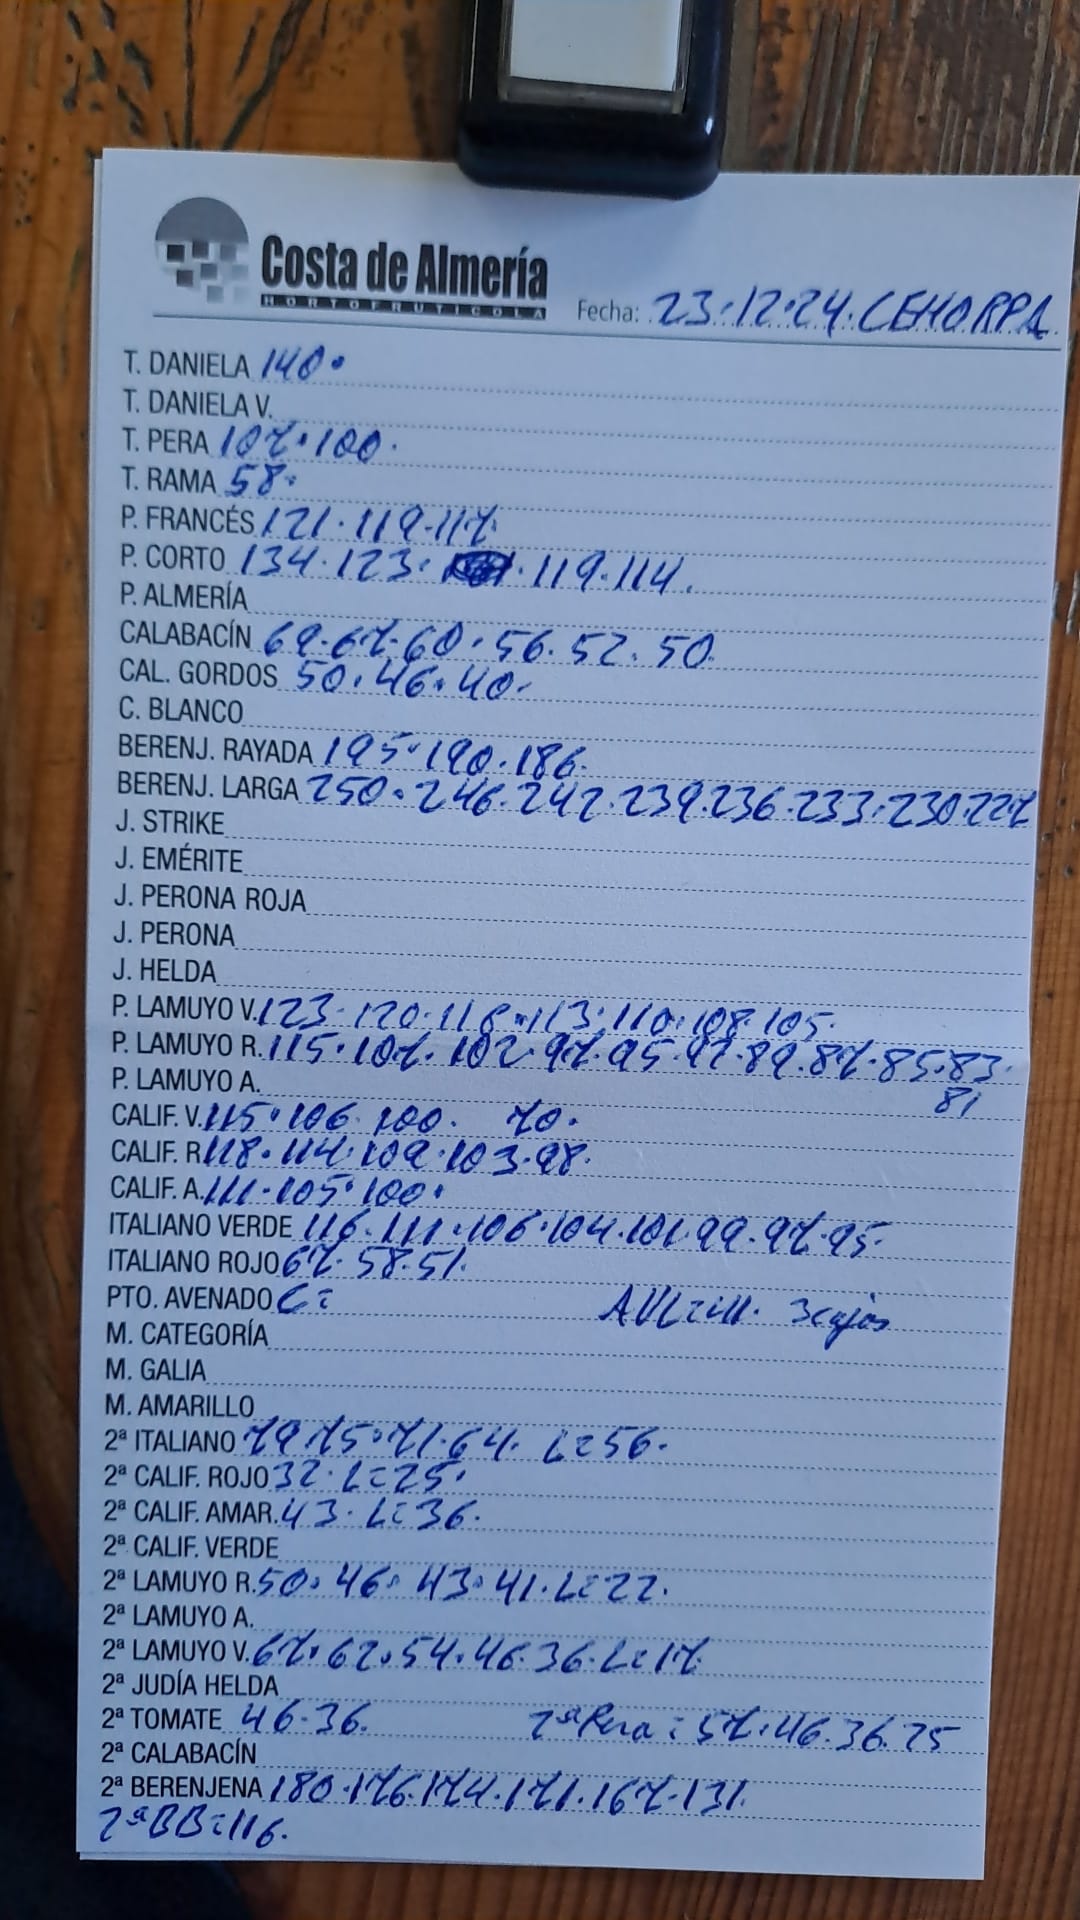 Costa de Almería
HORTOFRUTICOLA
Fecha: 23.12.24. CEHORPA
T. DANIELA 140.
T. DANIELA V.
T. PERA 107.100.
T. RAMA 58.
P. FRANCÉS 121.119.117.
P. CORTO 134.123. .119.114.
P. ALMERÍA
CALABACÍN 69.67.60.56.52.50.
CAL. GORDOS 50.46.40.
C. BLANCO
BERENJ. RAYADA 195.190.186.
BERENJ. LARGA 250.246.242.239.236.233.230.227
J. STRIKE
J. EMÉRITE
J. PERONA ROJA
J. PERONA
J. HELDA
P. LAMUYO V. 123.120.118.113.110.108.105.
P. LAMUYO R. 115.107.102.97.95.92.89.87.85.83.
81
P. LAMUYO A.
CALIF. V. 115.106.100. 70.
CALIF. R 118.114.109.103.98.
CALIF. A. 111.105.100.
ITALIANO VERDE 116.111.106.104.101.99.97.95.
ITALIANO ROJO 67.58.51.
PTO. AVENADO C= 3 cajas
M. CATEGORÍA
M. GALIA
M. AMARILLO
2ª ITALIANO 79.75.71.64. L=56.
2ª CALIF. ROJO 32. L=25.
2ª CALIF. AMAR. 43. L=36.
2ª CALIF. VERDE
2ª LAMUYO R. 50.46.43.41. L=22.
2ª LAMUYO A.
2ª LAMUYO V. 67.62.54.46.36. L=17.
2ª JUDÍA HELDA
2ª TOMATE 46.36. 2ª Pera=57.46.36.25
2ª CALABACÍN
2ª BERENJENA 180.176.174.171.167.131.
2ª BB=116.